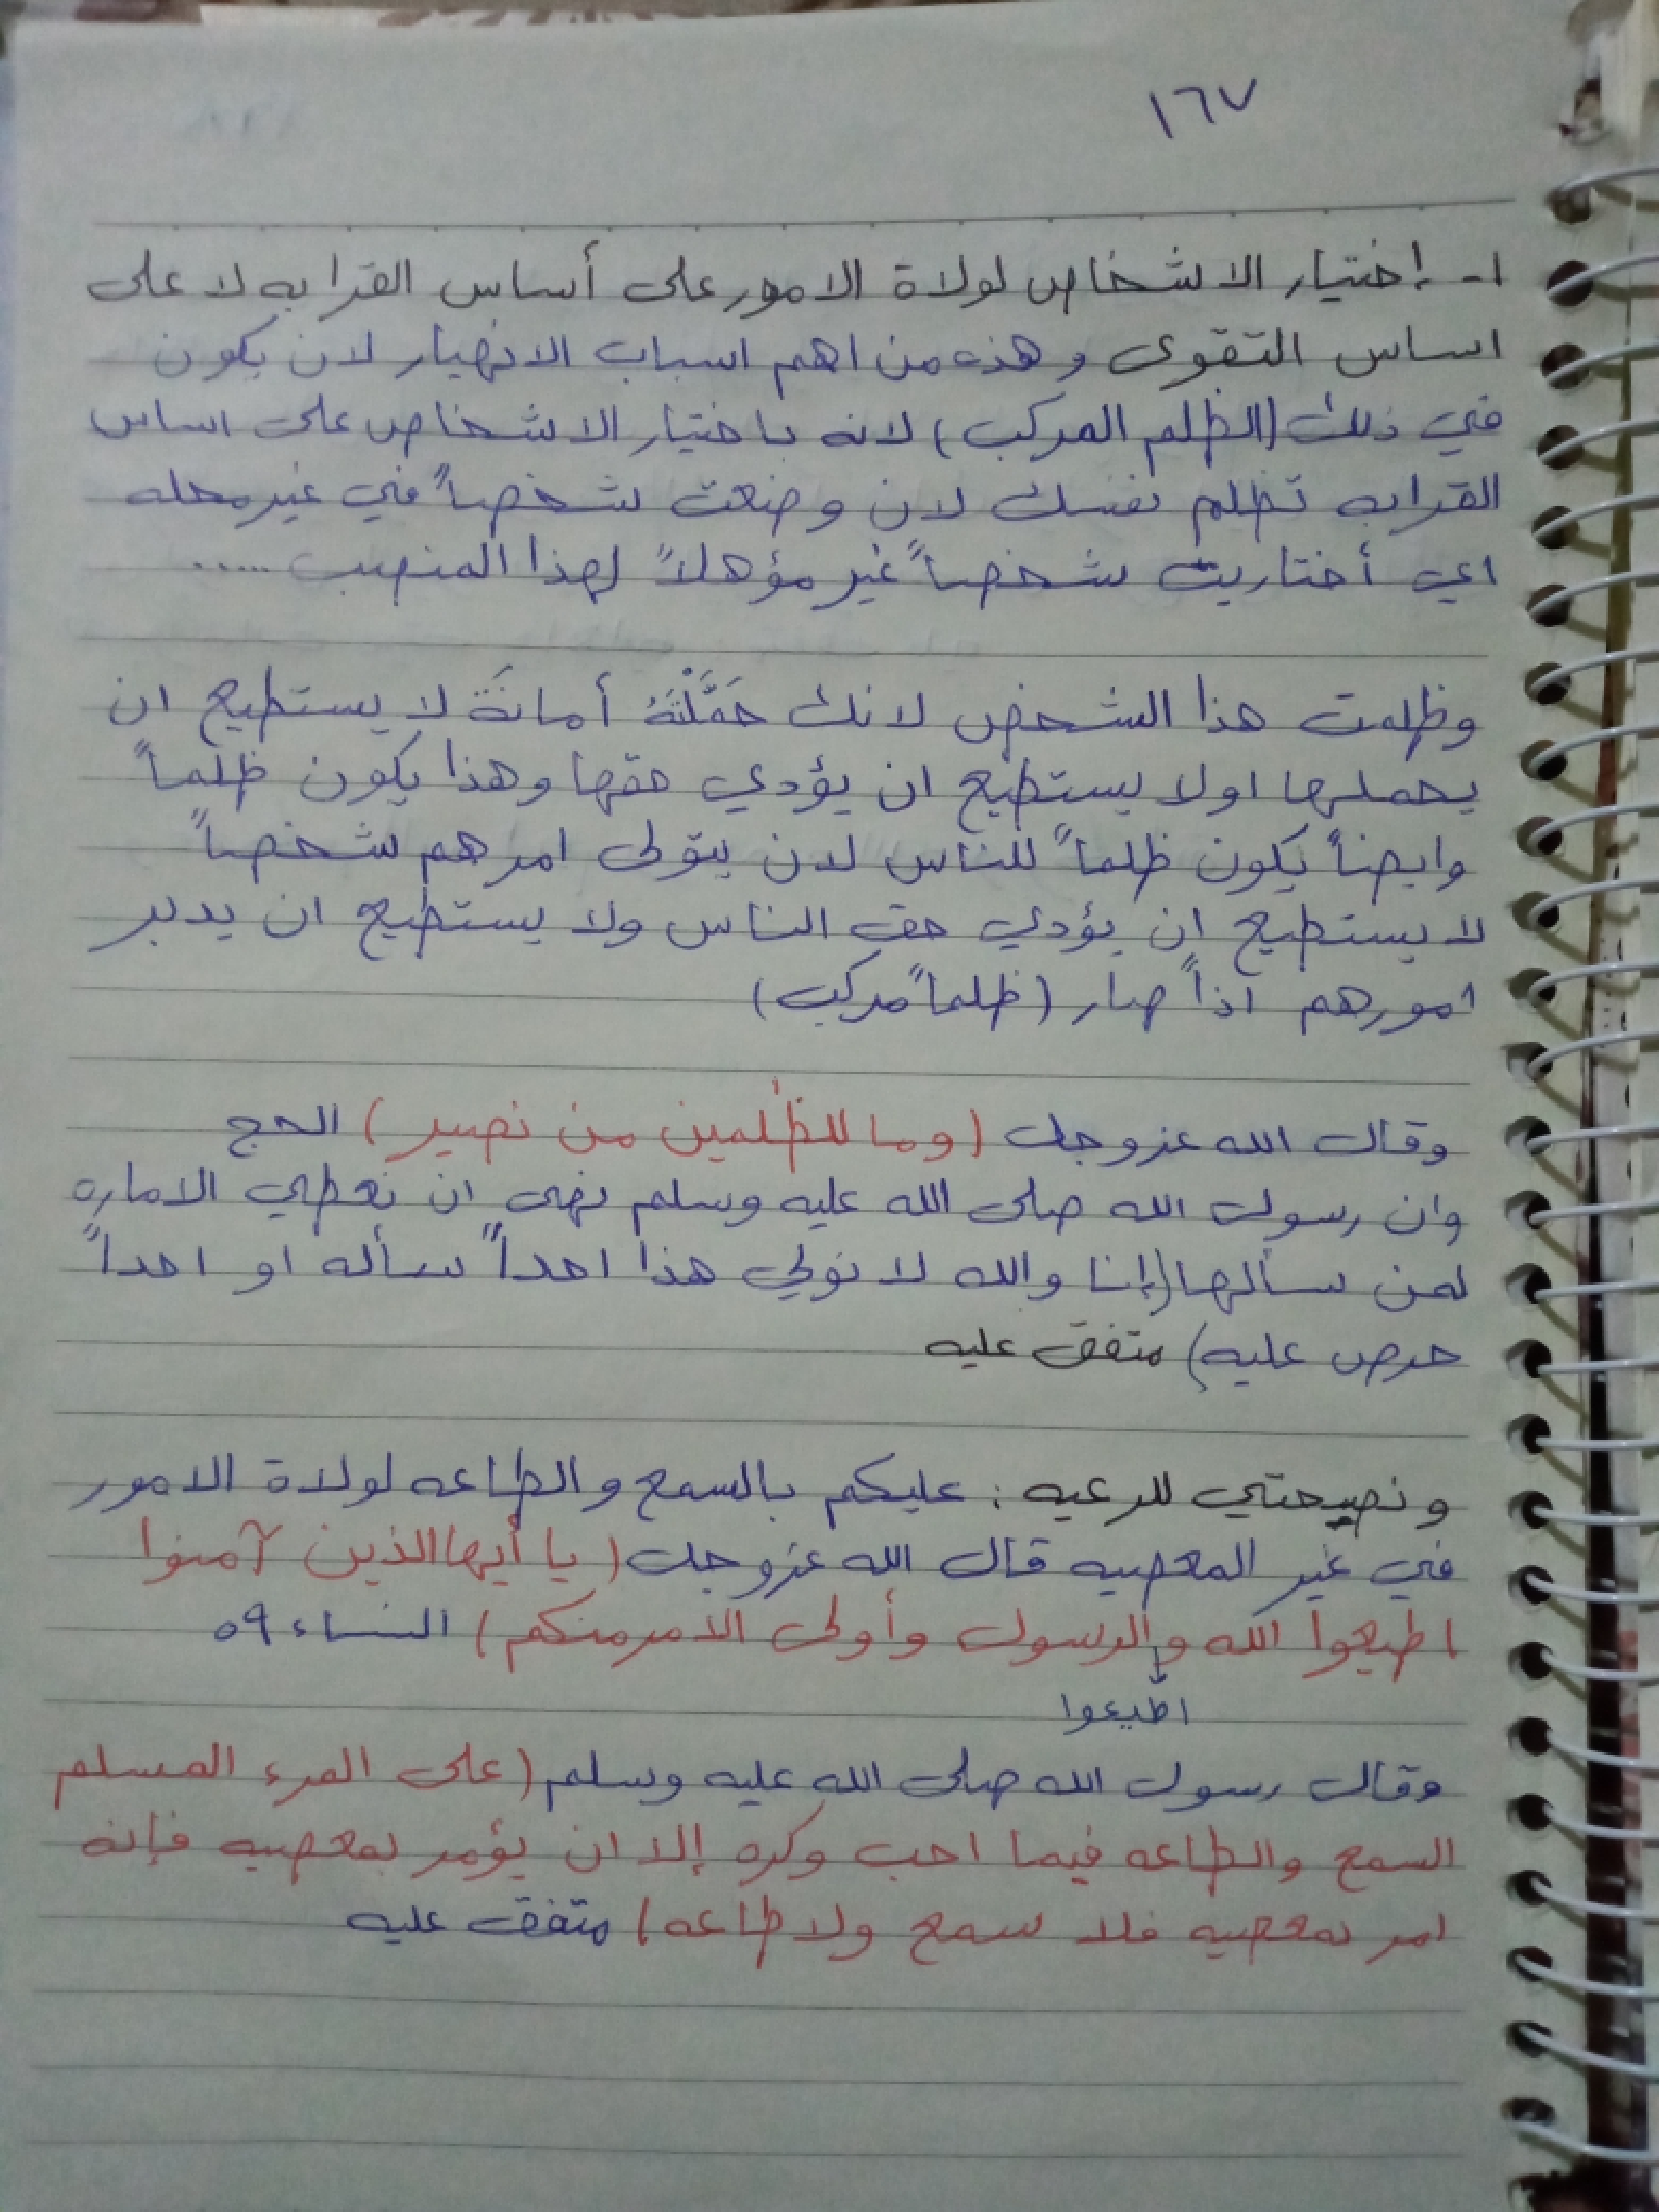 ١٦٧
١- إختيار الاشخاص لولاة الامور على أساس القرابه لا على
اساس التقوى وهذه من اهم اسباب الانهيار لان يكون
في ذلك (الظلم المركب) لانه باختيار الاشخاص على اساس
القرابه تظلم نفسك لان وضعت شخصاً في غير محله
اي أختاريت شخصاً غير مؤهلاً لهذا المنصب .....
وظلمت هذا الشخص لانك حَمَّلْتَهُ أمانَةَ لا يستطيع ان
يحملها اولا يستطيع ان يؤدي حقها وهذا يكون ظلماً
وايضاً يكون ظلماً للناس لان يتولى امرهم شخصاً
لا يستطيع ان يؤدي حق الناس ولا يستطيع ان يدبر
امورهم اذاً صار (ظلماً مركب)
وقال الله عزوجل (وما للظٰلمين من نصير) الحج
وان رسول الله صلى الله عليه وسلم نهى ان نعطي الاماره
لمن سألها (إنا والله لا نولي هذا احداً سأله او احداً
حرص عليه) متفق عليه
ونصيحتي للرعيه : عليكم بالسمع والطاعه لولاة الامور
في غير المعصيه قال الله عزوجل (يا أيها الذين آمنوا
اطيعوا الله والرسول وأولى الامر منكم) النساء ٥٩
اطيعوا
وقال رسول الله صلى الله عليه وسلم (على المرء المسلم
السمع والطاعه فيما احب وكره إلا ان يؤمر بمعصيه فإنه
امر بمعصيه فلا سمع ولا طاعه) متفق عليه